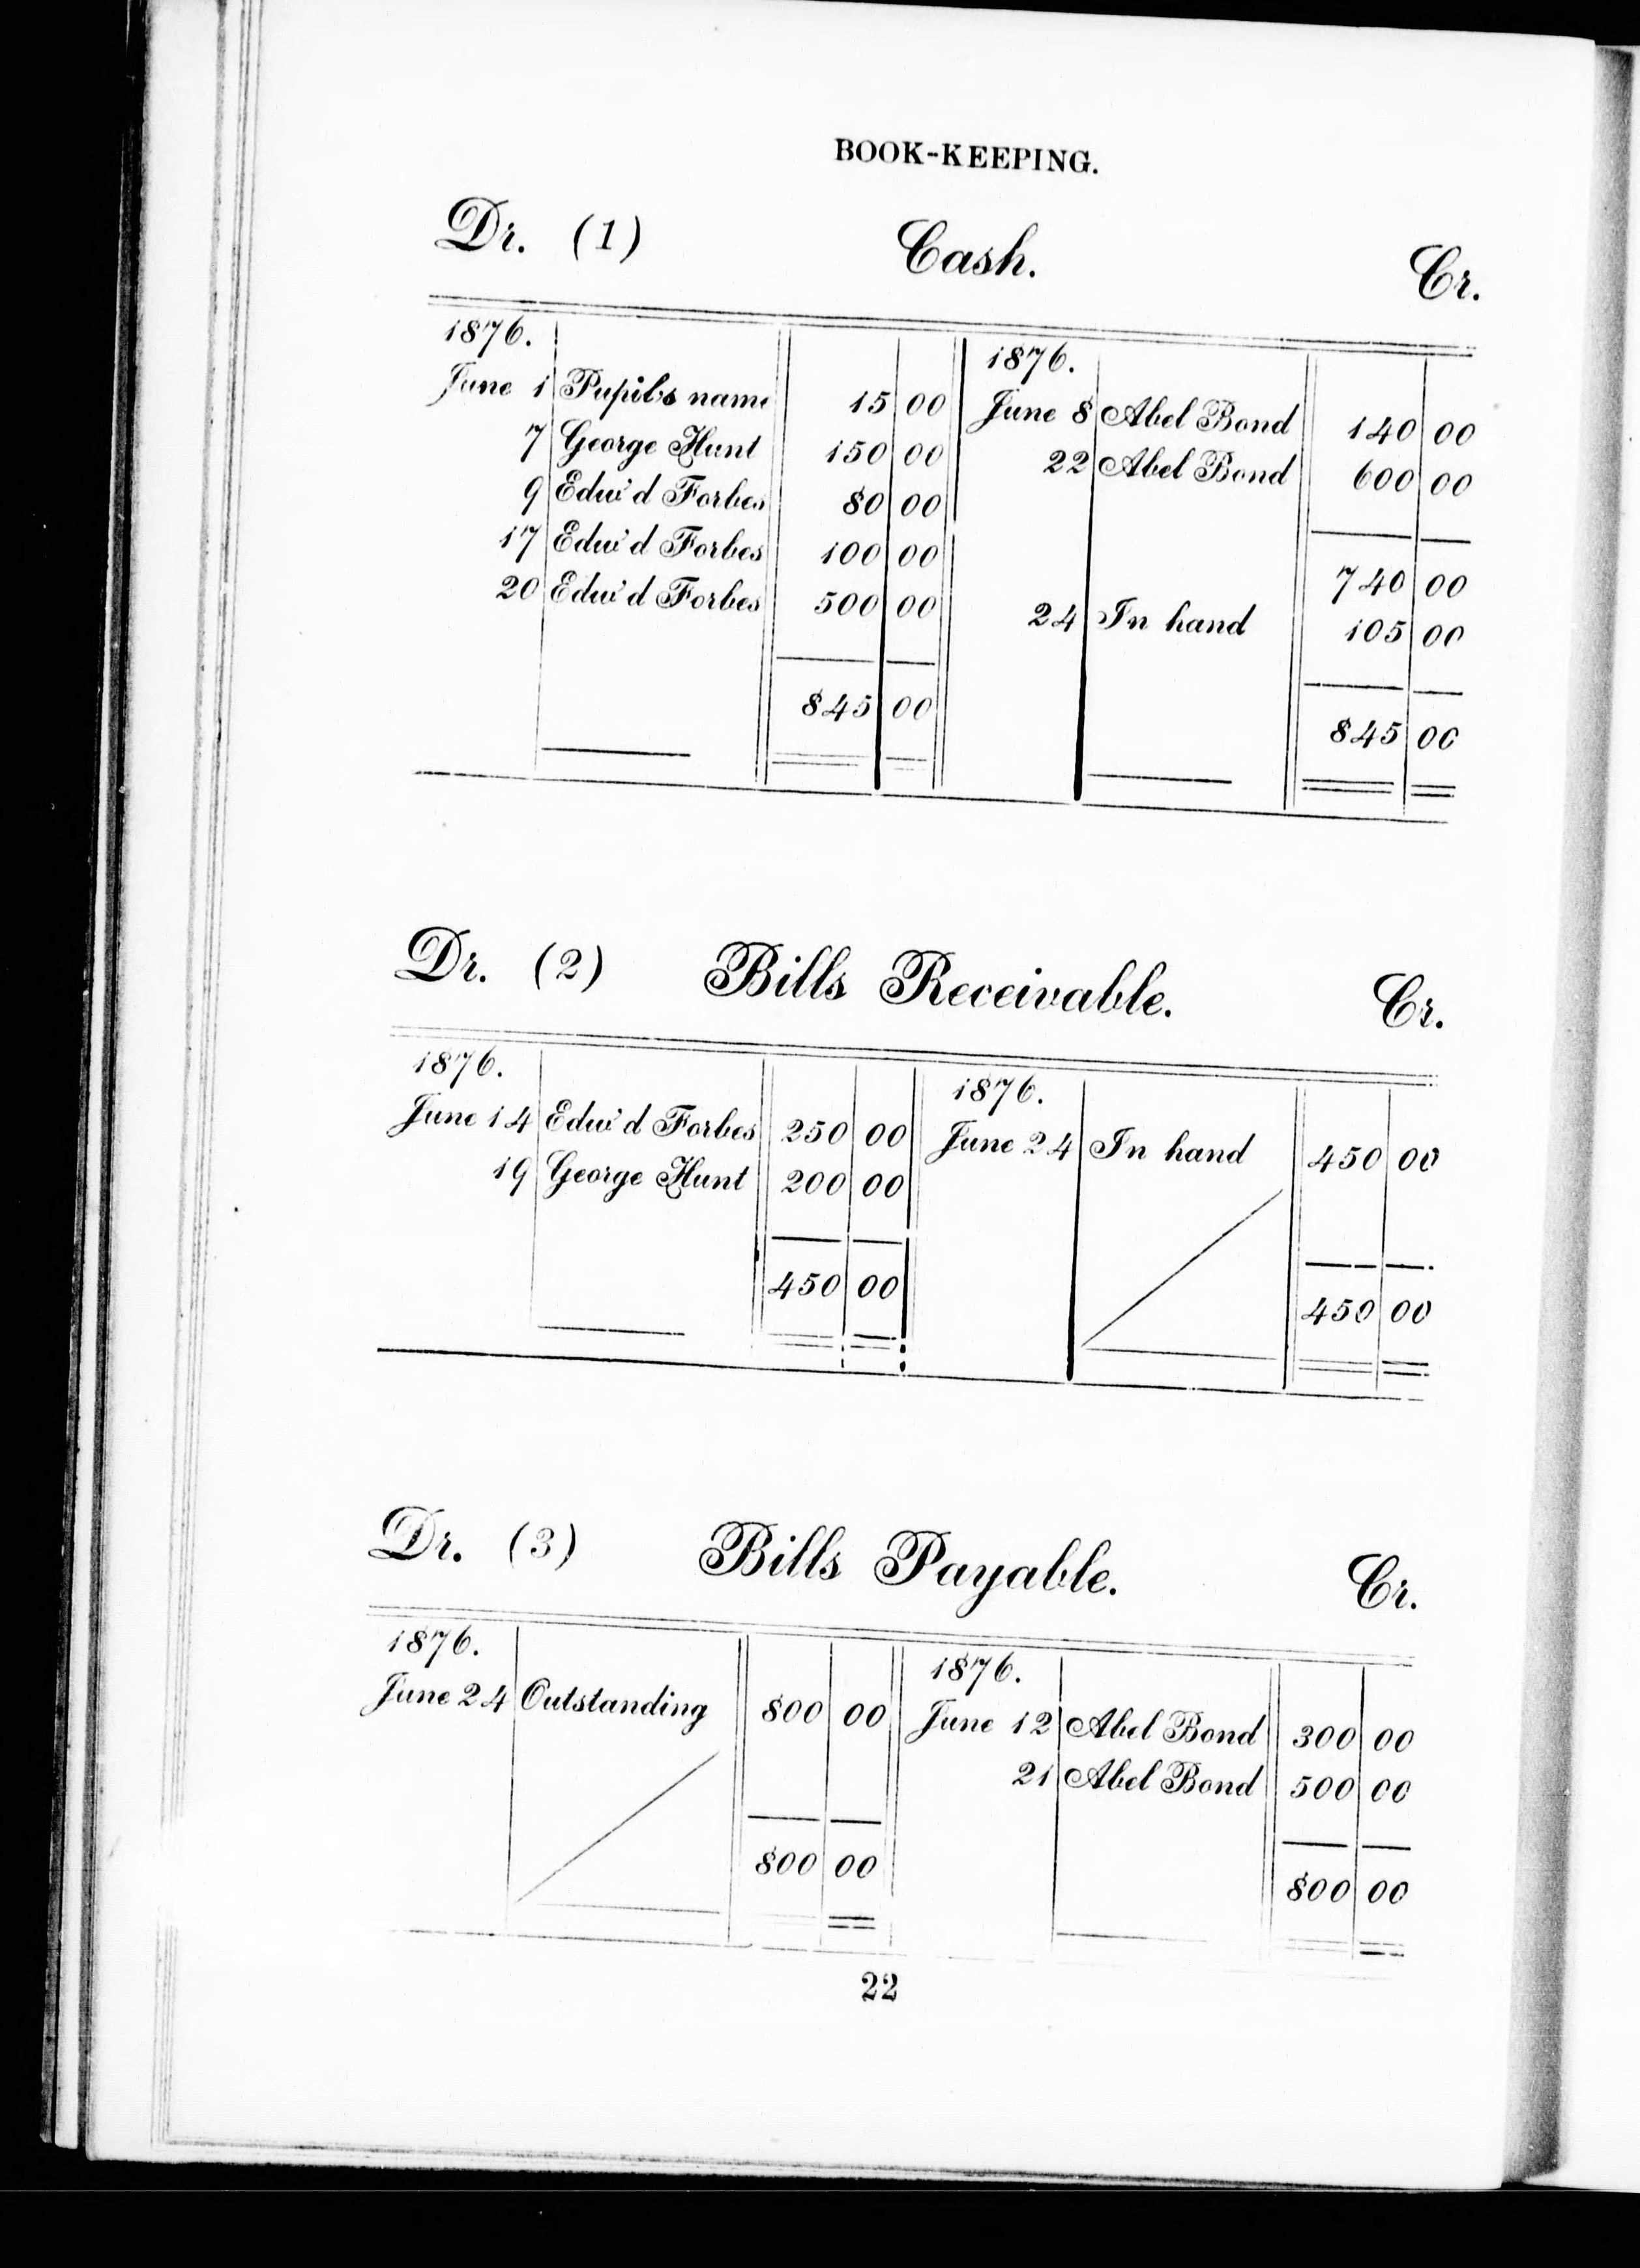 BOOK-KEEPING.
Dr. (1) Cash. Cr.
1876. 1876.
June 1 Pupil's name 15 00 June 8 Abel Bond 140 00
7 George Hunt 150 00 22 Abel Bond 600 00
9 Edw'd Forbes 80 00
17 Edw'd Forbes 100 00 740 00
20 Edw'd Forbes 500 00 24 In hand 105 00
845 00 845 00
Dr. (2) Bills Receivable. Cr.
1876. 1876.
June 14 Edw'd Forbes 250 00 June 24 In hand 450 00
19 George Hunt 200 00
450 00 450 00
Dr. (3) Bills Payable. Cr.
1876. 1876.
June 24 Outstanding 800 00 June 12 Abel Bond 300 00
21 Abel Bond 500 00
800 00 800 00
22